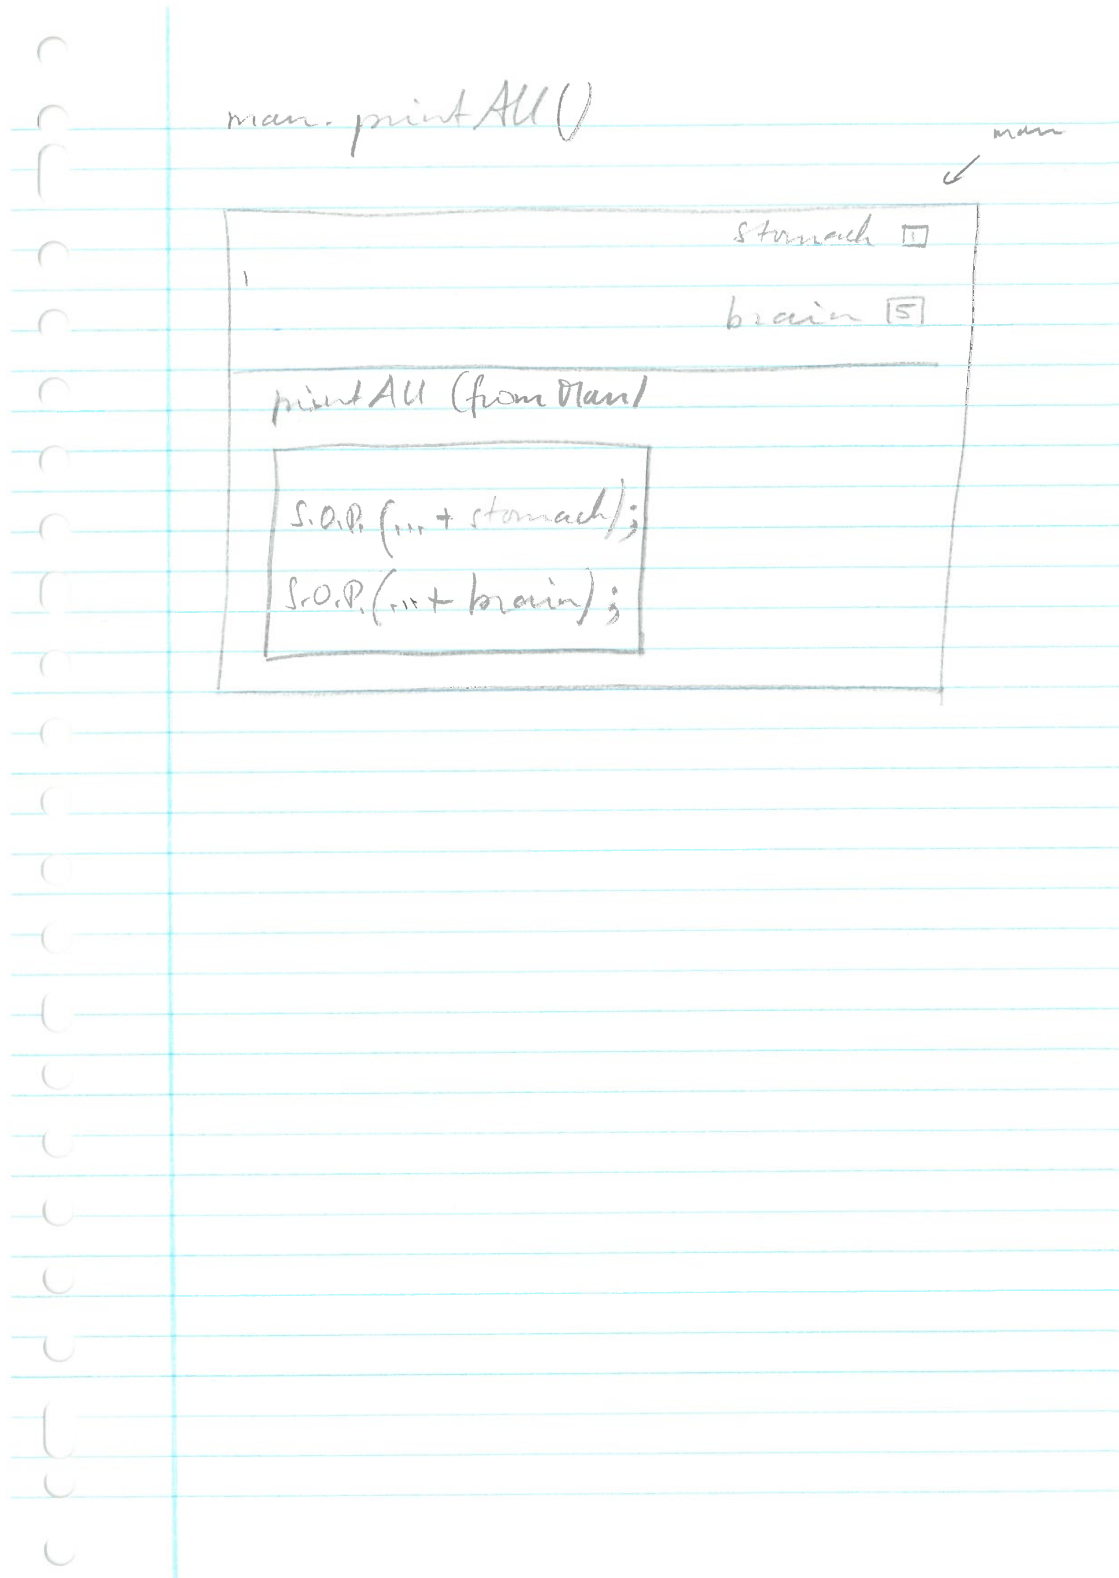 man. printAll()
man
stomach 1
brain 5
printAll (from Man)
S.O.P. (... + stomach);
S.O.P. (... + brain);